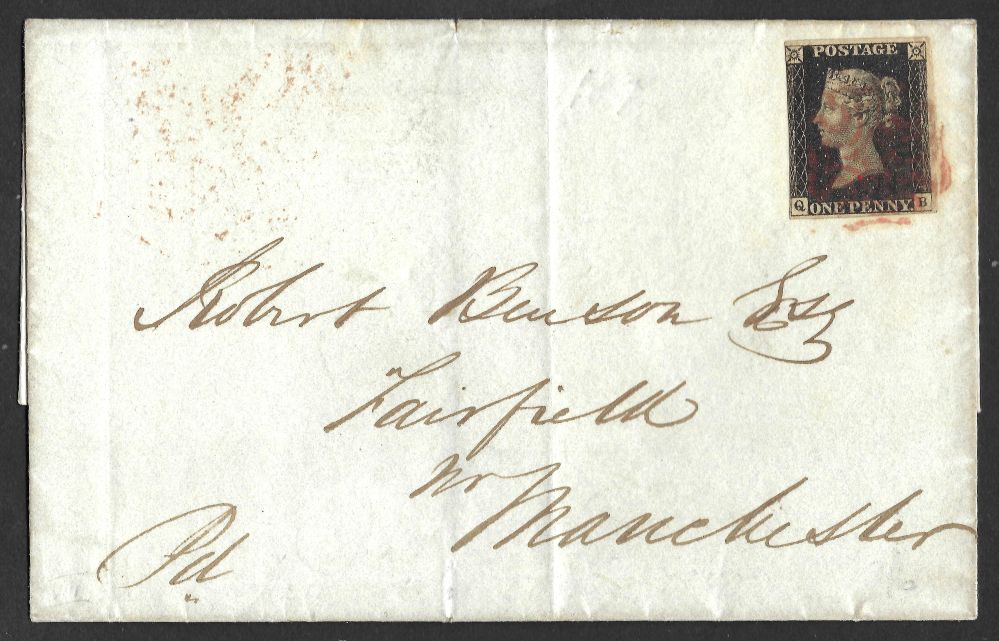 POSTAGE
Q ONE PENNY. B
Robert Benson Esq
Fairfield
nr Manchester
Pd